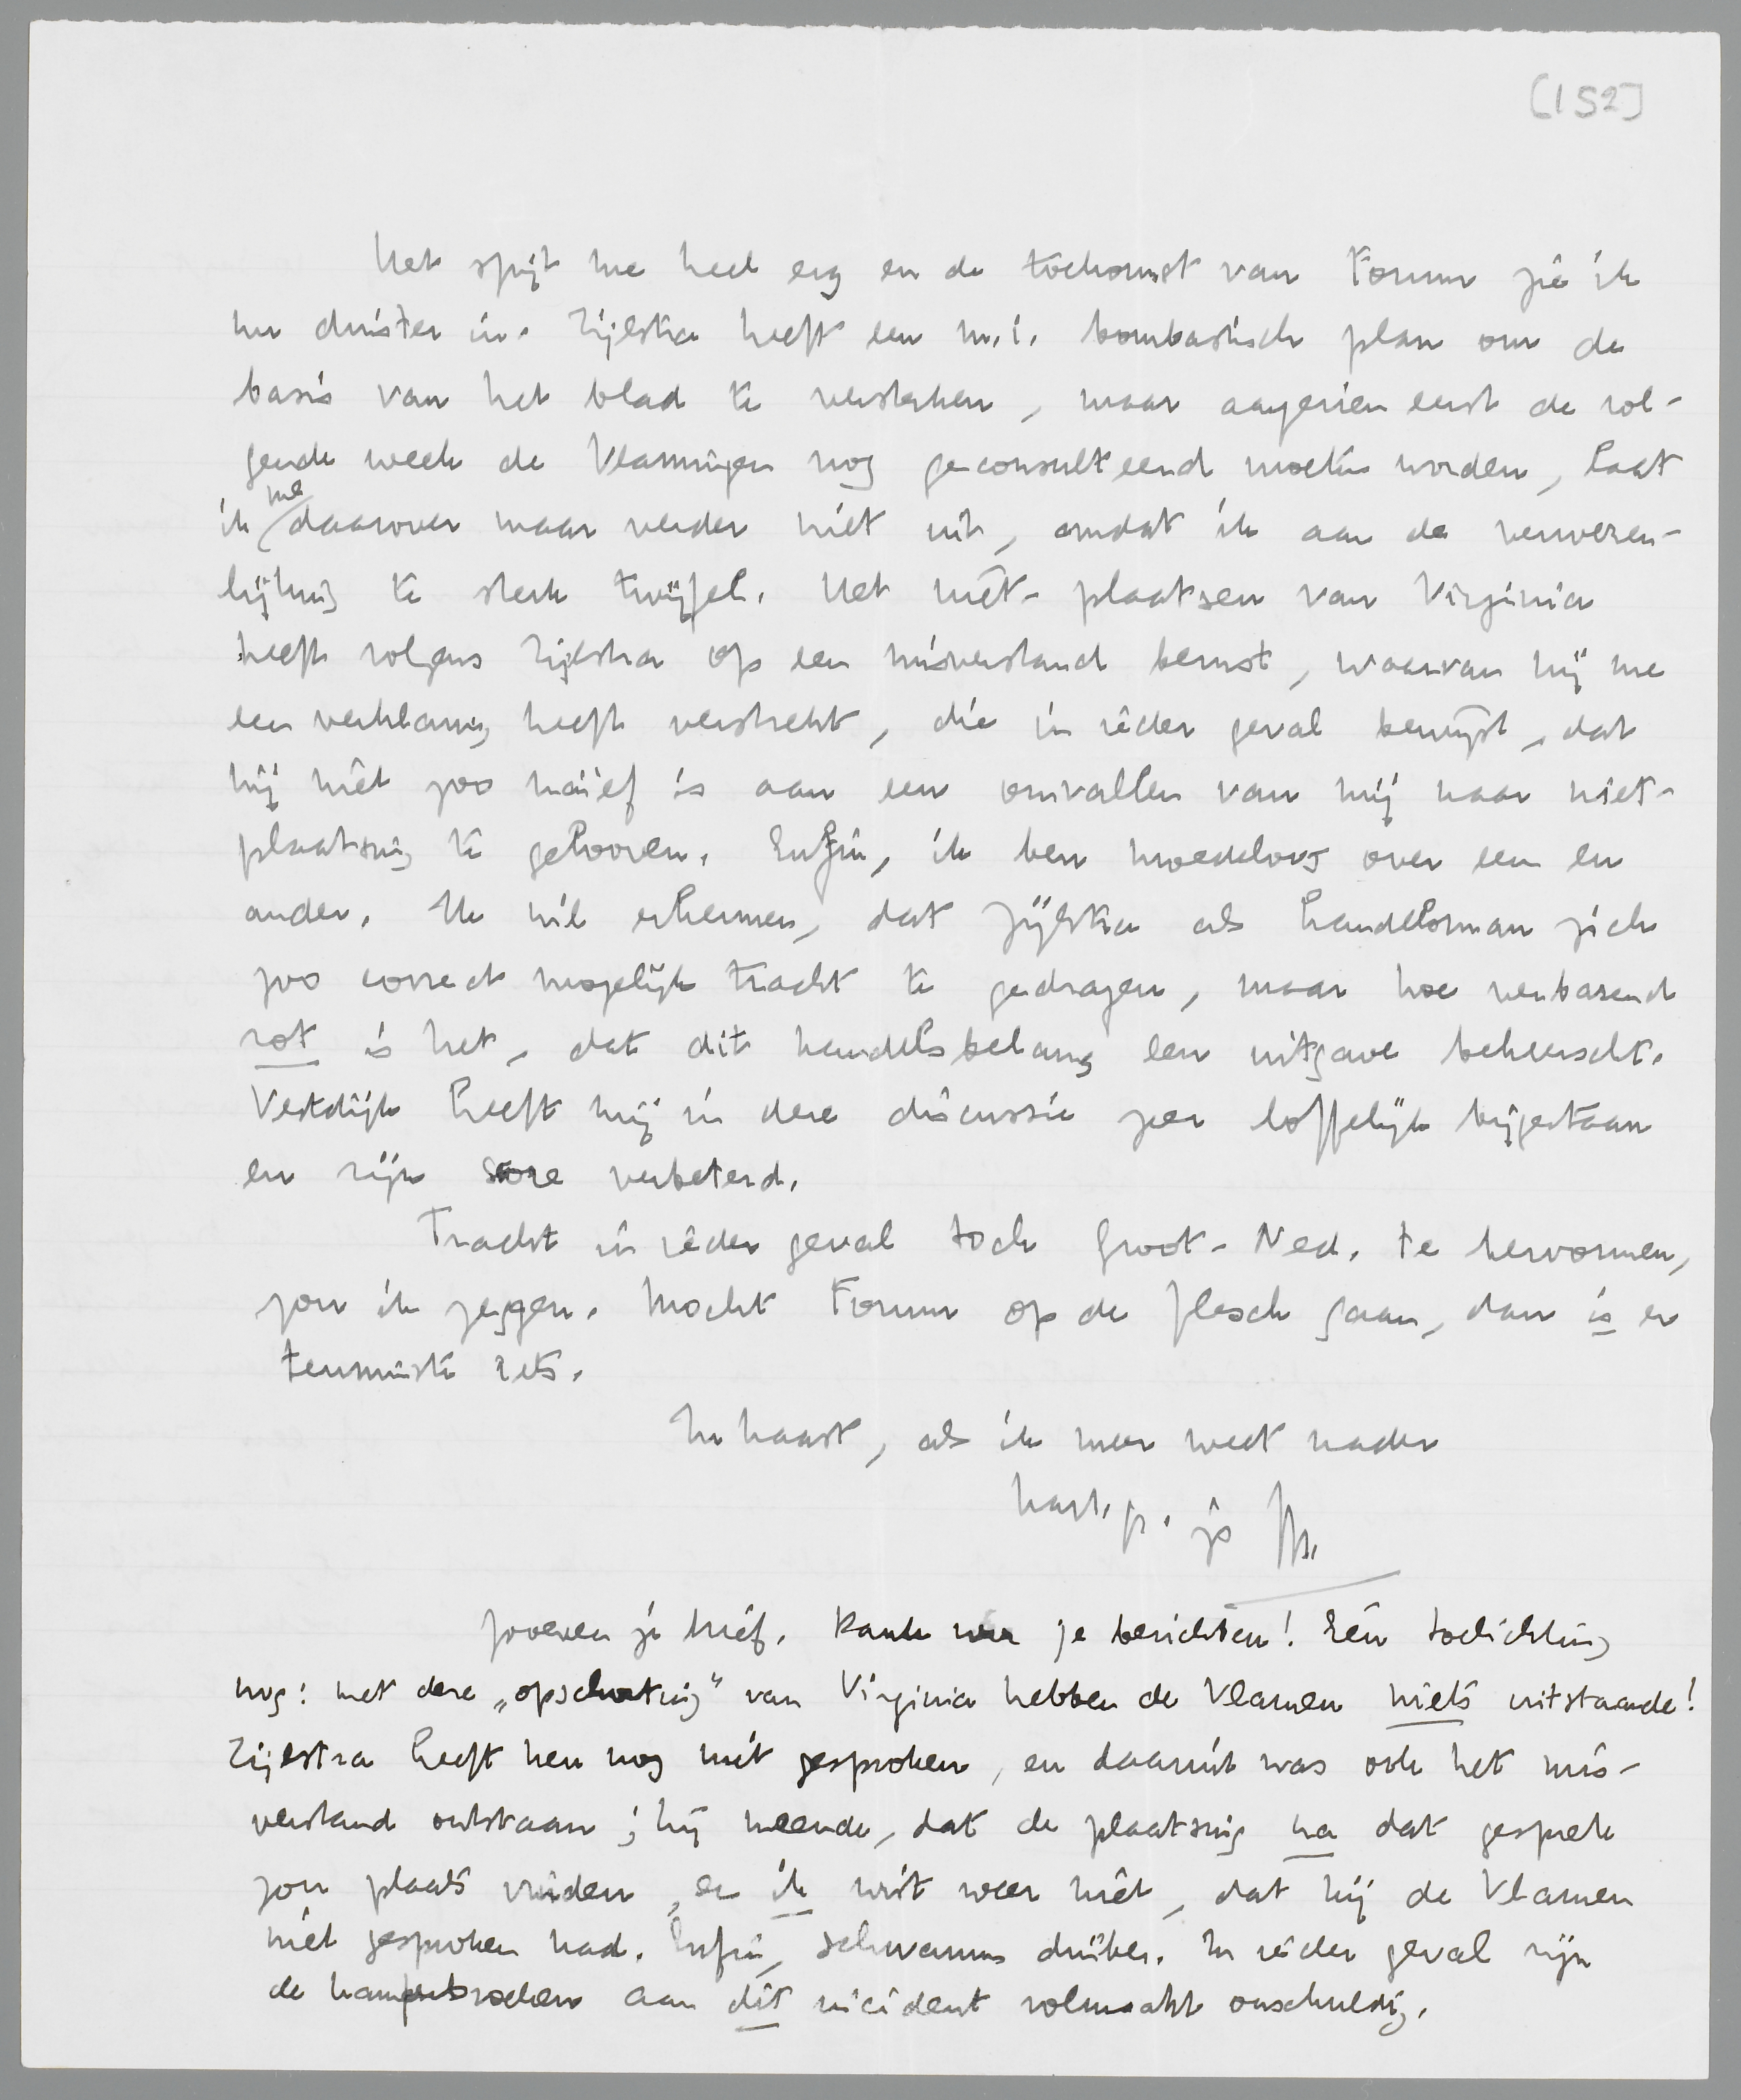 [152]
Het spijt me heel erg en de toekomst van Forum zie ik
nu duister in. Zijlstra heeft een m.i. bombastisch plan om de
basis van het blad te versterken, maar aangezien eerst de vol-
gende week de Vlamingen nog geconsulteerd moeten worden, laat
ik me daarover maar verder niet uit, omdat ik aan de verwezen-
lijking te sterk twijfel. Het niet-plaatsen van Virginia
heeft volgens Zijlstra op een misverstand berust, waarvan hij me
een verklaring heeft verstrekt, die in ieder geval bewijst, dat
hij niet zoo naïef is aan een omvallen van mij naar niet-
plaatsing te gelooven. Enfin, ik ben moedeloos over een en
ander. Ik wil erkennen, dat Zijlstra als handelsman zich
zoo correct mogelijk tracht te gedragen, maar hoe verbazend
rot is het, dat dit handelsbelang een uitgave beheerscht.
Vestdijk heeft mij in deze discussie zeer loffelijk bijgestaan
en zijn score verbeterd.
Tracht in ieder geval toch Groot-Ned. te hervormen,
zou ik zeggen. Mocht Forum op de flesch gaan, dan is er
tenminste iets.
In haast, als ik meer weet nader
hart. gr. je
Zooeven je brief. Dank voor je berichten! Eén toelichting
nog: met deze „opschorting" van Virginia hebben de Vlamen niets uitstaande!
Zijlstra heeft hen nog niet gesproken, en daaruit was ook het mis-
verstand ontstaan; hij meende, dat de plaatsing na dat gesprek
zou plaats vinden, en ik wist weer niet, dat hij de Vlamen
niet gesproken had. Enfin, schwamm drüber. In ieder geval zijn
de aan dit incident volmaakt onschuldig.